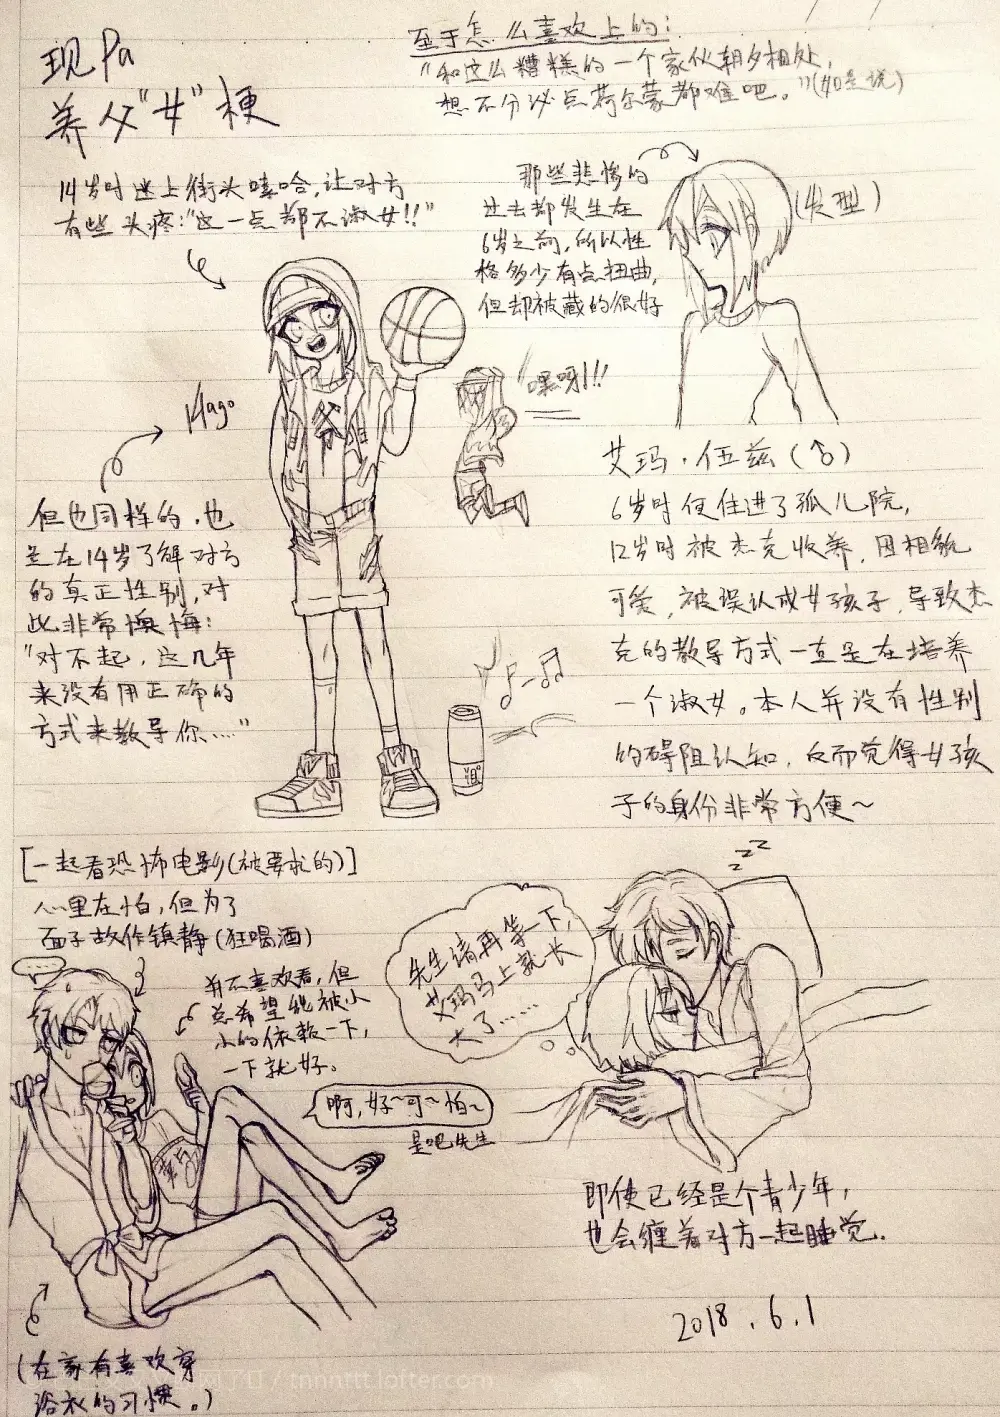 现Pa
养父"女"梗
至于怎么喜欢上的:
"和这么糟糕的一个家伙朝夕相处,
想不分泌点荷尔蒙都难吧。"(如是说)
14岁时迷上街头嘻哈,让对方
有些头疼:"这一点都不淑女!!"
那些悲惨的
过去都发生在
6岁之前,所以性
格多少有点扭曲,
但却被藏的很好
(发型)
爷
嘿呀!!!
14ago
但也同样的,也
是在14岁了解对方
的真正性别,对
此非常懊悔:
"对不起,这几年
来没有用正确的
方式来教导你……"
艾玛·伍兹(♂)
6岁时便住进了孤儿院,
12岁时被杰克收养,因相貌
可爱,被误认成女孩子,导致杰
克的教导方式一直是在培养
一个淑女。本人并没有性别
的碍阻认知,反而觉得女孩
子的身份非常方便~
[一起看恐怖电影(被要求的)]
心里在怕,但为了
面子故作镇静(狂喝酒)
并不喜欢看,但
总希望能被小
小的依赖一下,
一下就好。
啊,好~可~怕~
是吧先生
zzz
先生请再等一下,
艾玛马上就长
大了……
即使已经是个青少年,
也会缠着对方一起睡觉.
2018.6.1
(在家有喜欢穿
浴衣的习惯。)
tnnnttt.lofter.com